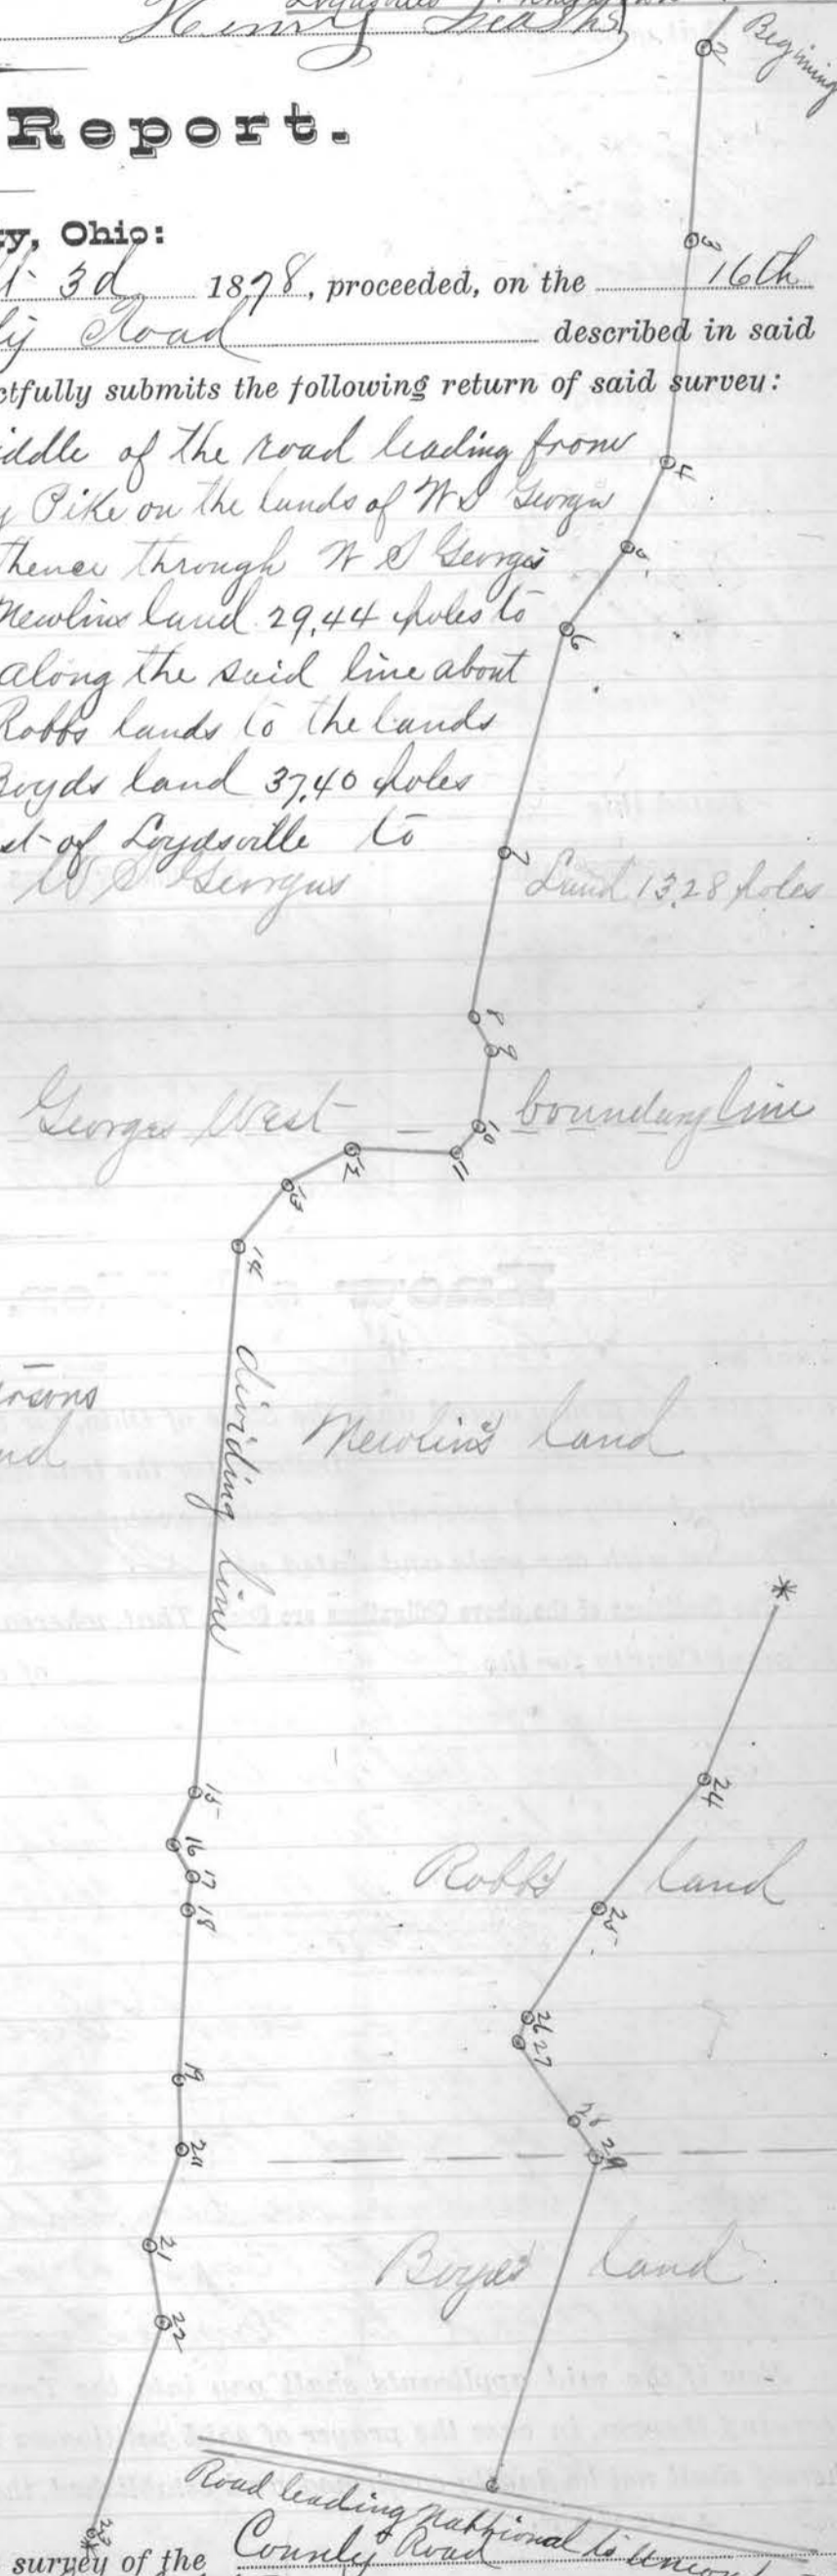 Henry
Beginning
2
Report.
3
ty, Ohio:
3d 1878, proceeded, on the 16th
Road described in said
ctfully submits the following return of said survey:
iddle of the road leading from
4
Pike on the lands of W S Georges
5
thence through W S Georges
Newlins land 29,44 poles to
6
along the said line about
Robbs lands to the lands
Boyds land 37,40 poles
st of Loydsville to
7
W S Georges Land 13,28 poles
8
9
Georges West boundary line
10
11
12
13
14
dividing line
Newlin's land
nd
*
24
15
16
17
18
Robb's land
25
26
27
19
28
20
29
21
Boyd's land
22
Road leading National to Union
23
*
survey of the County Road